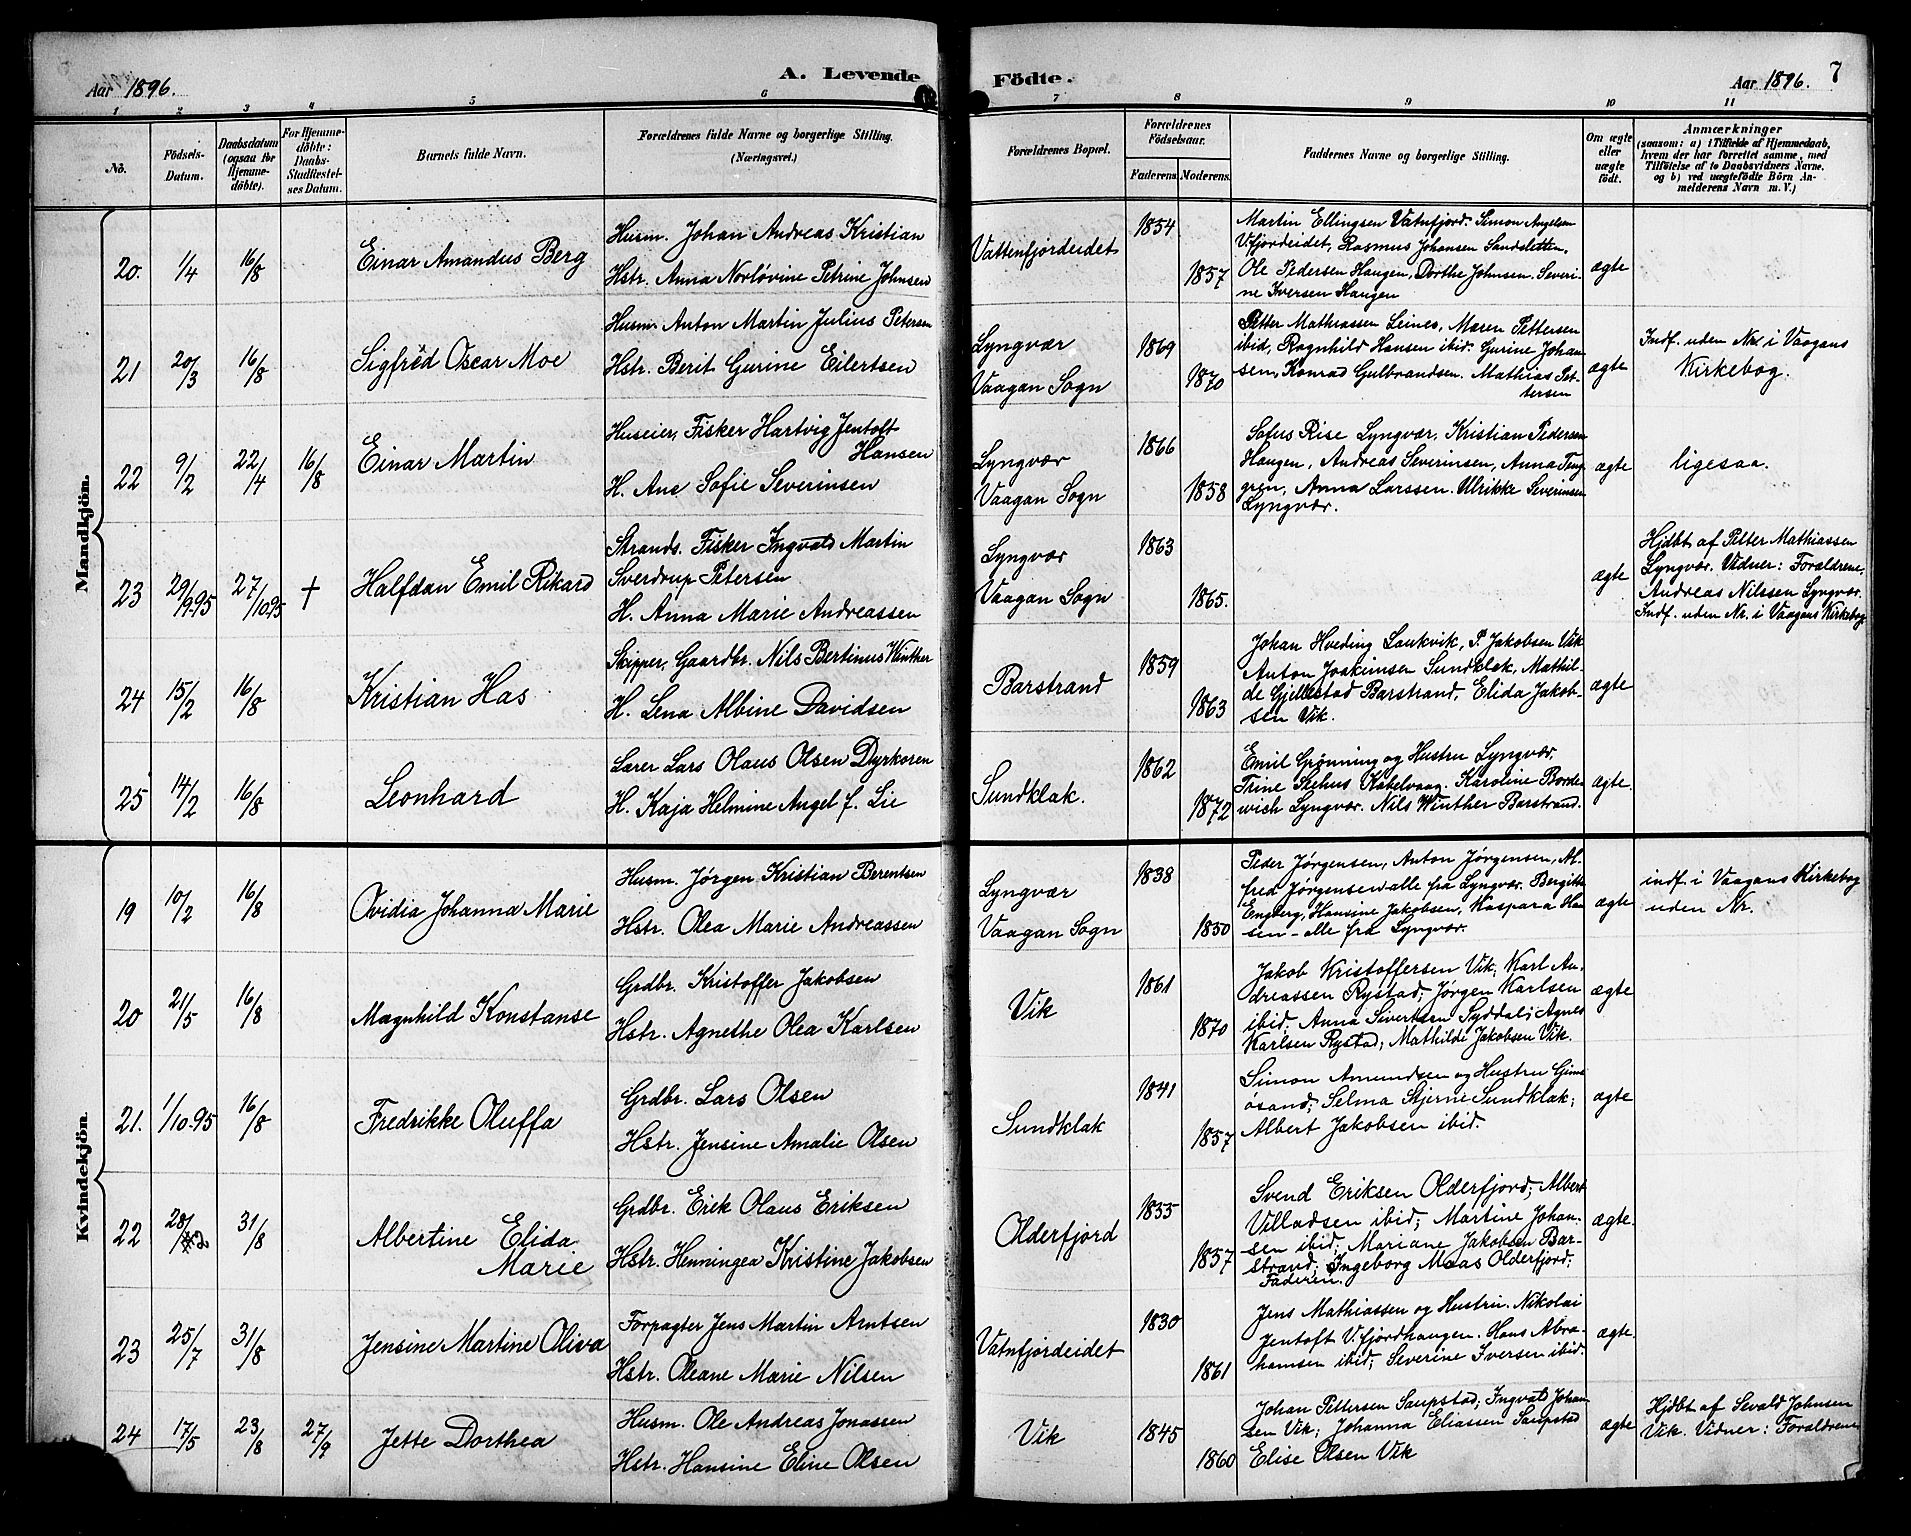 Aar 1896.
A. Levende Födte.
Aar 1896. 7
1 2 3 4 5 6 7 8 9 10 11
No.
Födsels-
Datum.
Daabsdatum
(ogsaa for
Hjemme-
döbte).
For Hjemme-
döbte:
Daabs-
Stadfæstel-
ses Datum.
Barnets fulde Navn.
Forældrenes fulde Navne og borgerlige Stilling.
(Næringsvei.)
Forældrenes Bopæl.
Forældrenes
Födselsaar.
Faderens. Moderens.
Faddernes Navne og borgerlige Stilling.
Om ægte
eller
uægte
födt.
Anmærkninger
(saasom: a) i Tilfælde af Hjemmedaab,
hvem der har forrettet samme, med
Tilföielse af to Daabsvidners Navne,
og b) ved uægtefödte Börn An-
melderens Navn m. V.)
Mandkjön.
20. 1/4 16/8 Einar Amandus Berg
Husm. Johan Andreas Kristian
Hstr. Anna Norlovine Petrine Johnsen
Vattenfjordeidet 1854 1857
Martin Ellingsen Vatnfjord. Simon Angelsen
V.fjordeidet, Rasmus Johansen Sandsletten,
Ole Pedersen Haugen, Dorthe Johnsen. Severi-
ne Iversen Haugen
ægte
21 20/3 16/8 Sigfred Oscar Moe
Husm. Anton Martin Julius Petersen
Hstr. Berit Gurine Eilertsen
Lyngvær
Vaagan Sogn
1869 1870
Petter Mathiassen Leines, Maren Pettersen
ibid, Ragnhild Hansen ibid. Gurine Johan-
sen, Konrad Gulbrandsen. Mathias Pet-
tersen
ægte
Indf. uden Nr. i Vaagans
Kirkebog.
22 9/2 22/4 16/8 Einar Martin
Huseier, Fisker Hartvig Jentoft
Hansen
H. Ane Sofie Severinsen
Lyngvær
Vaagan Sogn
1866 1858
Sofus Rise Lyngvær, Kristian Pedersen
Haugen, Andreas Severinsen, Anna Ting-
gren, Anna Larssen. Ulrikke Severinsen
Lyngvær.
ægte
ligesaa.
23 29/9.95 27/10.95 + Halfdan Emil Rikard
Strands. Fisker Ingvald Martin
Sverdrup Petersen
H. Anna Marie Andreassen
Lyngvær
Vaagan Sogn
1863 1865.
ægte
Hjdbt. af Petter Mathiassen
Lyngvær. Vidner: Forældrene,
Andreas Nilssen Lyngvær.
Indf. uden Nr. i Vaagans Kirkebog
24 15/2 16/8 Kristian Has
Skipper, Gaardbr. Nils Bertinus Winther
H. Lena Albine Davidsen
Barstrand
1859 1863
Johan Hveding Laukvik, P. Jakobsen Vik
Anton Joakimsen Sundklak, Mathil-
de Gjellestad Barstrand, Elida Jakob-
sen Vik.
ægte
25 14/2 16/8 Leonhard
Lærer Lars Olaus Olsen Dyrkoren
H. Kaja Helmine Angel f. Lie
Sundklak.
1862 1872
Emil Grønning og Hustru Lyngvær,
Trine Slehus Kabelvaag. Karoline Borde-
wich Lyngvær. Nils Winther Barstrand.
ægte.
Kvindekjön.
19 10/2 16/8 Ovidia Johanna Marie
Husm. Jørgen Kristian Berentsen
Hstr. Olea Marie Andreassen
Lyngvær
Vaagan Sogn
1838 1850
Peder Jørgensen, Anton Jørgensen, Al-
fred Jørgensen alle fra Lyngvær. Bergitte
Engberg, Hansine Jakobsen, Kaspara Han-
sen - alle fra Lyngvær.
ægte
indf. i Vaagans Kirkebog
uden Nr.
20 21/5 16/8 Magnhild Konstanse
Grdbr. Kristoffer Jakobsen
Hstr. Agnethe Olea Karlsen
Vik
1861 1870
Jakob Kristoffersen Vik; Karl An-
dreassen Rystad; Jørgen Karlsen
ibid, Anna Sivertsen Syddal; Agnes
Karlsen Rystad; Mathilde Jakobsen Vik.
ægte
21. 1/10.95 16/8 Fredrikke Oluffa
Grdbr. Lars Olsen
Hstr. Jensine Amalie Olsen
Sundklak
1841 1857
Simon Amundsen og Hustru Gims-
øsand; Selma Stjerne Sundklak;
Albert Jakobsen ibid.
ægte
22 28/2 31/8 Albertine Elida
Marie
Grdbr. Erik Olaus Eriksen
Hstr. Henningea Kristine Jakobsen
Olderfjord
1855 1857
Svend Eriksen Olderfjord; Albert
Villadsen ibid; Martine Johan-
sen ibid; Mariane Jakobsen Bar-
strand; Ingeborg Maas Olderfjord;
Faderen.
ægte.
23 25/7 31/8 Jensine Martine Oliva
Forpagter Jens Martin Arntsen
Hstr. Oleane Marie Nilsen
Vatnfjordeidet
1830 1861
Jens Mathiassen og Hustru. Nikolai
Jentoft V.fjordhaugen. Hans Abra-
hamsen ibid; Severine Iversen ibid.
ægte.
24 17/5 23/8 27/9 Jette Dorthea
Husm. Ole Andreas Jonassen
Hstr. Hansine Eline Olsen
Vik
1845 1860
Johan Pettersen Saupstad; Ingvald Johan-
sen Vik; Johanna Eliassen Saupstad
Elise Olsen Vik
ægte
Hjdbt. af Sevald Johnsen
Vik. Vidner: Forældrene